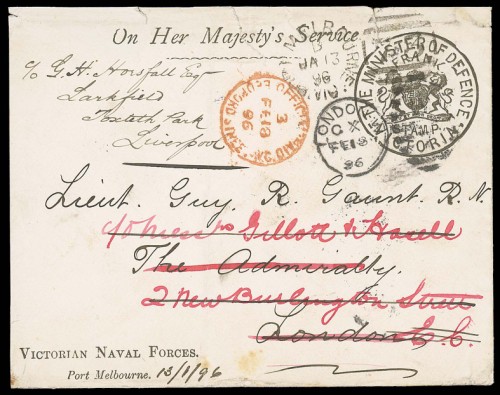 On Her Majesty's Service
c/o G. H. Horsfall Esq
Larkfield
Toxteth Park
Liverpool
MELBOURNE
JA 13
96
LONDON
X
FE 18
96
PAID
3
FE 18
96
THE MINISTER OF DEFENCE
FRANK
STAMP
VICTORIA
Lieut. Guy R. Gaunt. R. N.
c/o Messrs Gillott &
The Admiralty.
2 New Burlington Street
London E. C.
VICTORIAN NAVAL FORCES.
Port Melbourne. 13/1/96